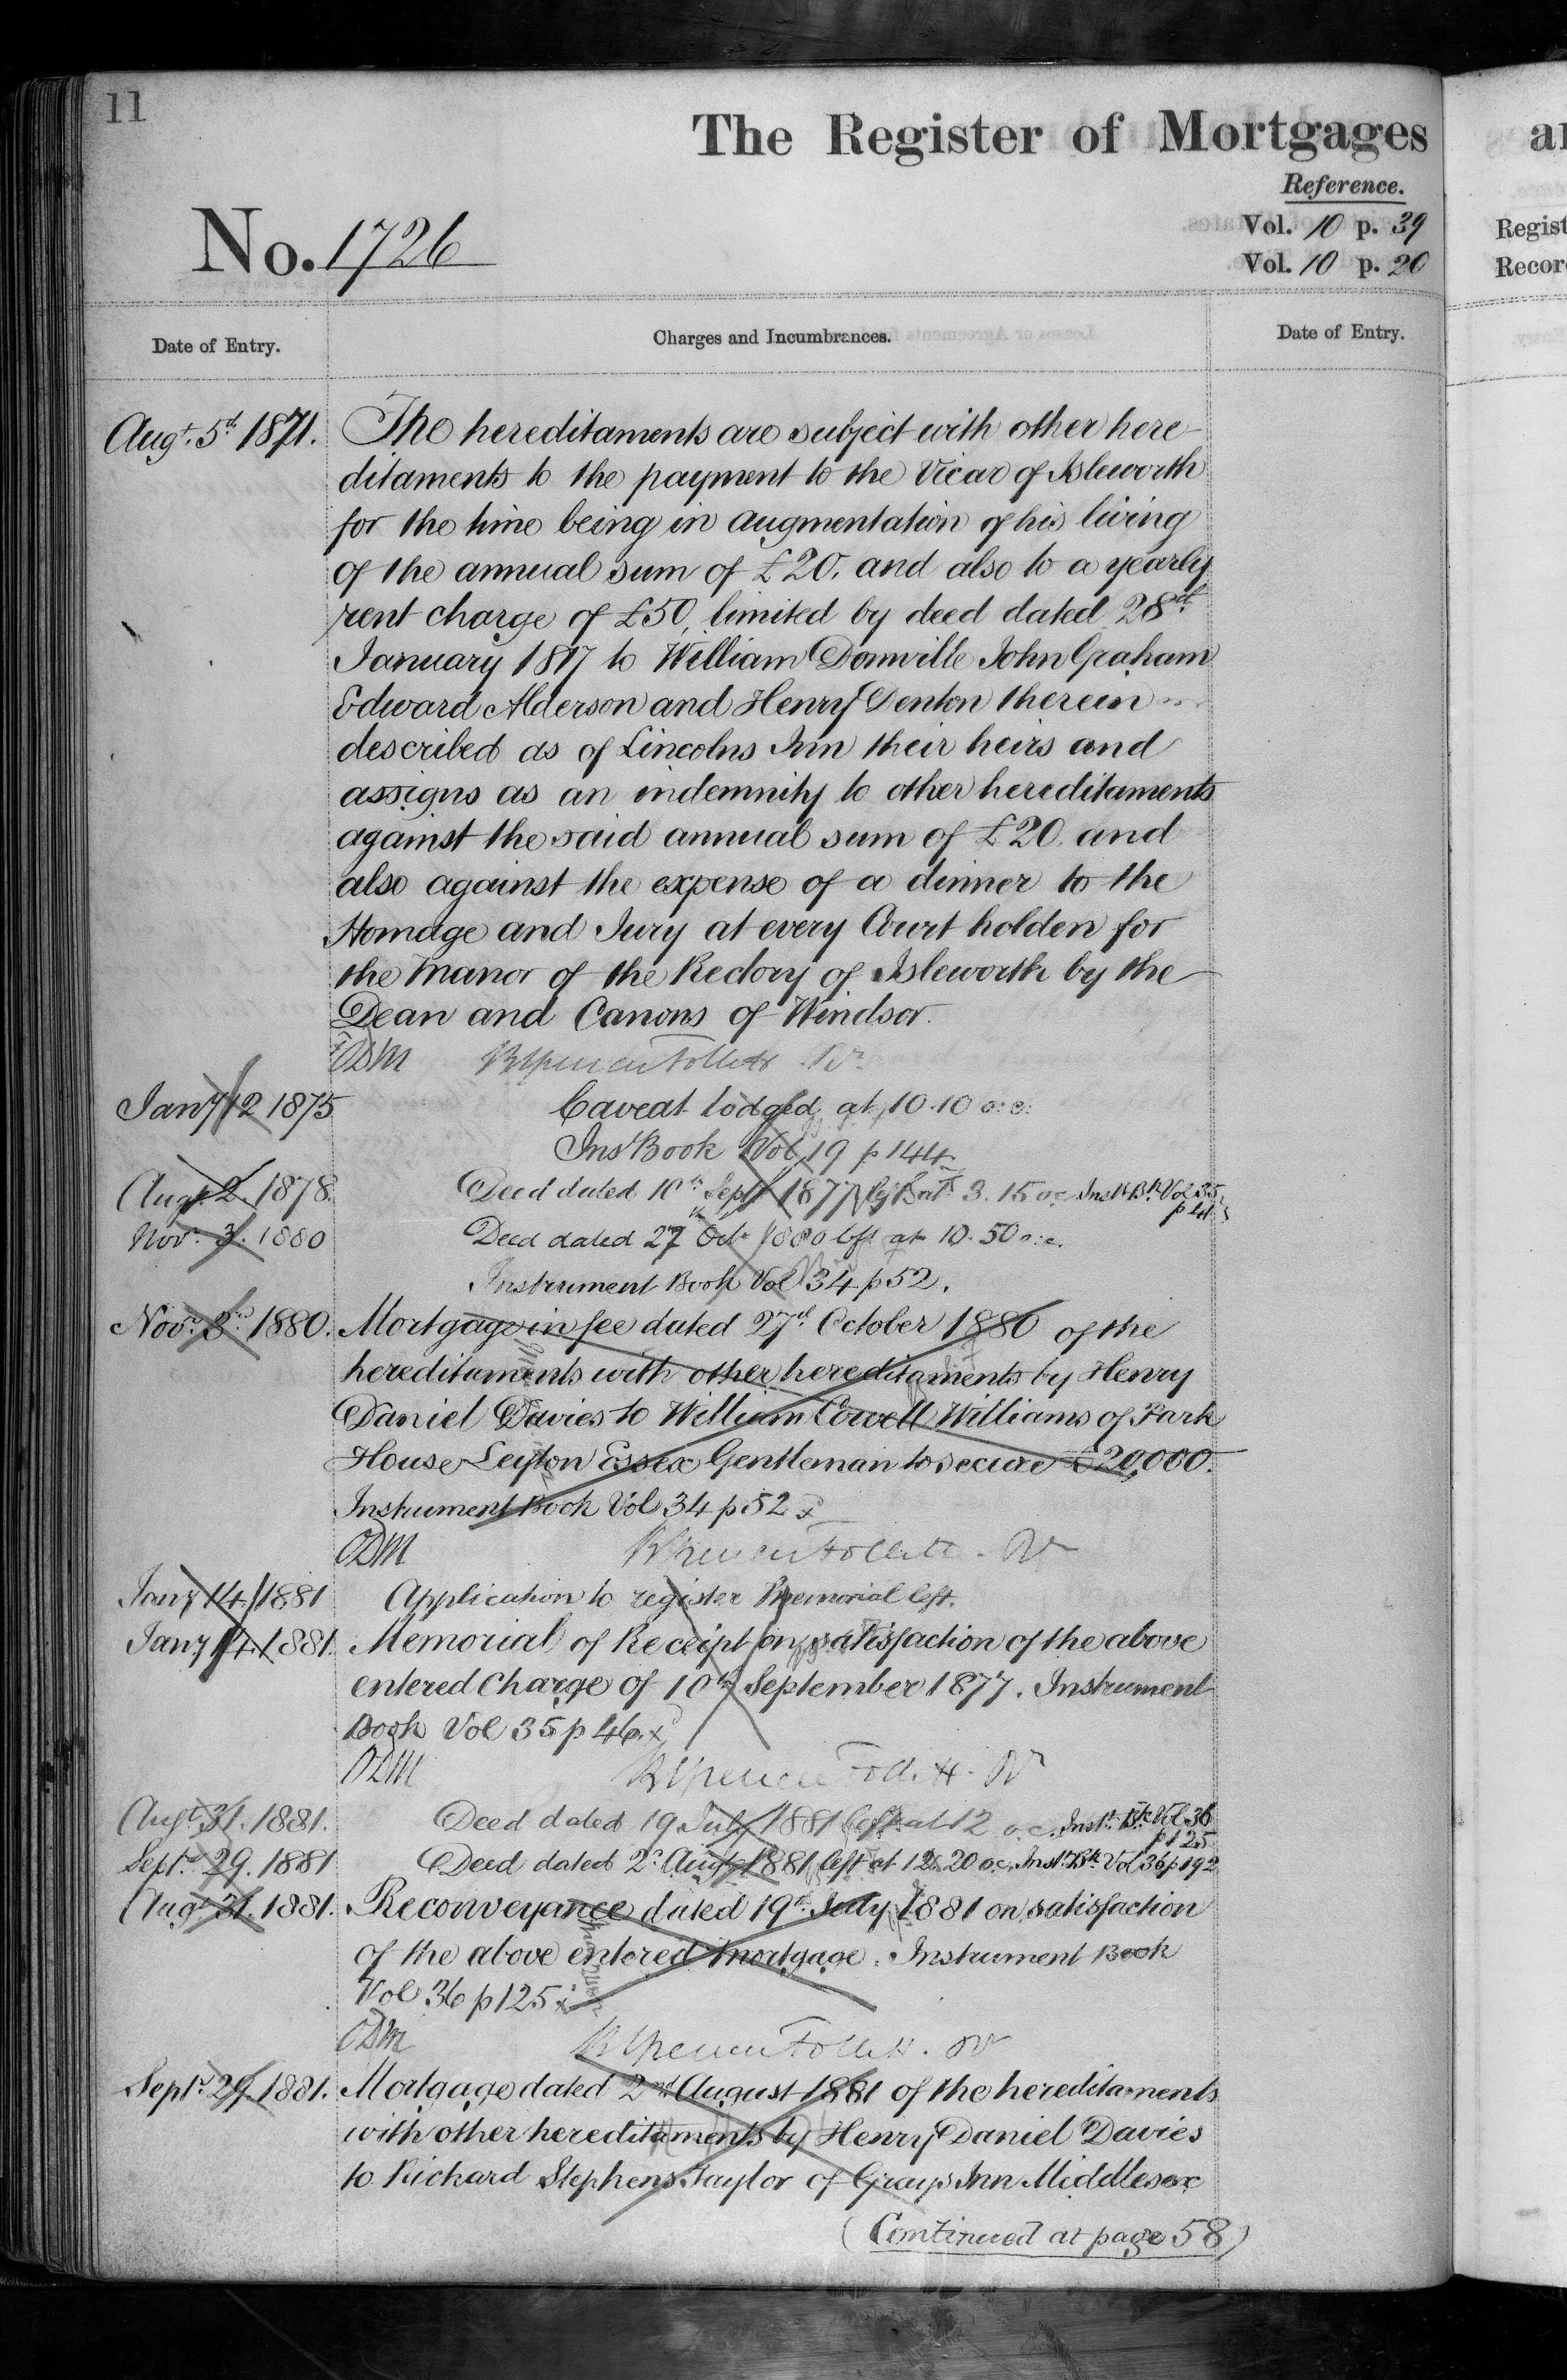 11
The Register of Mortgages
Reference.
No. 1726
Vol. 10 p. 39
Vol. 10 p. 20
Date of Entry.
Charges and Incumbrances.
Date of Entry.
Augt. 5th 1871. The hereditaments are subject with other here-
ditaments to the payment to the Vicar of Isleworth
for the time being in augmentation of his living
of the annual sum of £20. and also to a yearly
rent charge of £50, limited by deed dated 28th
January 1817 to William Domville John Graham
Edward Alderson and Henry Denton therein
described as of Lincolns Inn their heirs and
assigns as an indemnity to other hereditaments
against the said annual sum of £20. and
also against the expense of a dinner to the
Homage and Jury at every Court holden for
the Manor of the Rectory of Isleworth by the
Dean and Canons of Windsor.
ODM
Jany 12 1875 Caveat lodged at 10.10 o.c.
Inst Book Vol 19 p 144
Augt. 2. 1878. Deed dated 10th Sept 1877 left at 3.15 o.c. Inst. Bk. Vol 35
Nov. 3. 1880 Deed dated 27th Oct. 1880 left at 10.50 o.c.
Instrument Book Vol 34 p 52.
Novr. 3rd 1880. Mortgage in fee dated 27th October 1880 of the
hereditaments with other hereditaments by Henry
Daniel Davies to William Cowell Williams of Park
House Leyton Essex Gentleman to secure £20,000.
Instrument Book Vol 34 p 52
ODM
Jany 14/1881 Application to register Memorial left.
Jany 14. 1881. Memorial of Receipt on satisfaction of the above
entered Charge of 10th September 1877. Instrument
Book Vol 35 p 46.
ODM
Augt 31. 1881. Deed dated 19 July 1881 left at 12 o.c. Inst. Bk. Vol 36
p 125
Sept. 29. 1881 Deed dated 2d Augt 1881 left at 12.20 o.c. Inst. Bk. Vol 36 p 192
Augt 31. 1881. Reconveyance dated 19th July 1881 on satisfaction
of the above entered mortgage. Instrument Book
Vol 36 p 125
ODM
Septr. 29. 1881. Mortgage dated 2nd August 1881 of the hereditaments
with other hereditaments by Henry Daniel Davies
to Richard Stephens Taylor of Grays Inn Middlesex
(Continued at page 58)
Regist
Recor